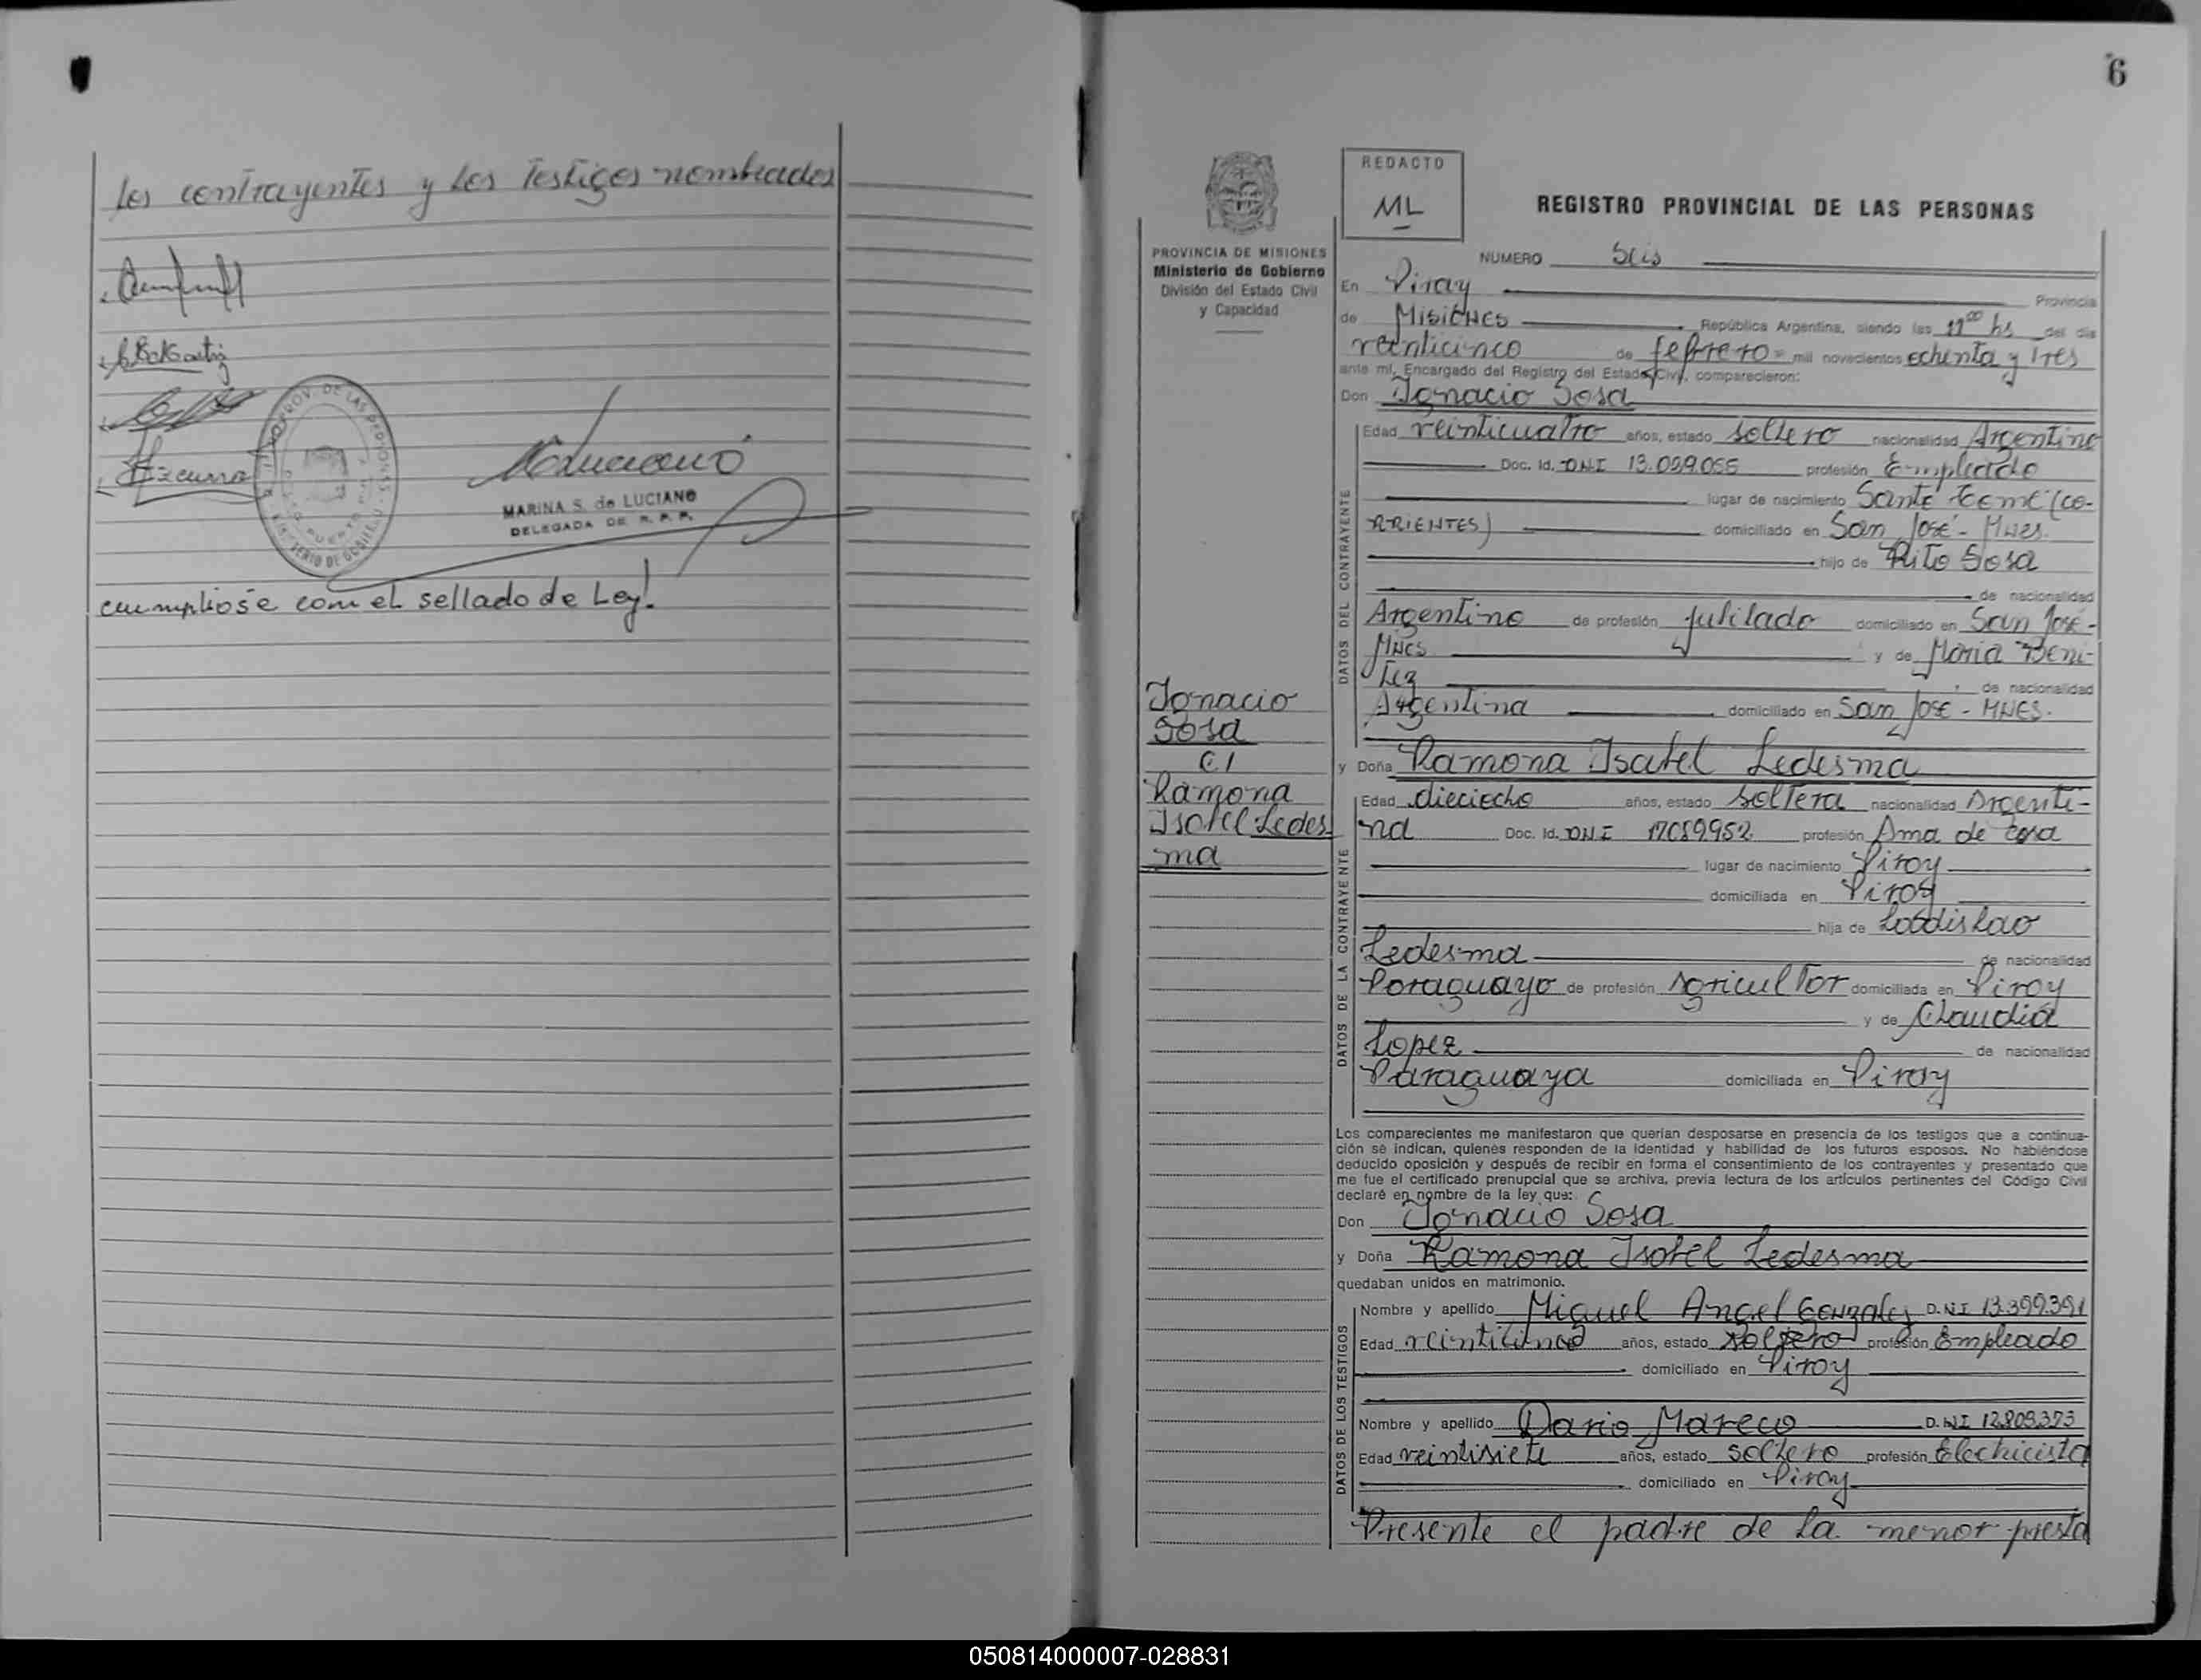 los contrayentes y los Testigos nombrados
Azcurra
MARINA S. de LUCIANO
DELEGADA DE R. P. P.
cumpliose con el sellado de Ley!
6
REDACTO
ML
REGISTRO PROVINCIAL DE LAS PERSONAS
PROVINCIA DE MISIONES
Ministerio de Gobierno
División del Estado Civil
y Capacidad
NUMERO Seis
En Piray Provincia
de Misiones República Argentina, siendo las 11⁰⁰ hs del día
veinticinco de febrero mil novecientos ochenta y tres
ante mí, Encargado del Registro del Estado Civil, comparecieron:
Don Ignacio Sosa
DATOS DEL CONTRAYENTE
Edad veinticuatro años, estado soltero nacionalidad Argentino
Doc. Id. DNI profesión Empleado
lugar de nacimiento Santo Tomé (Co-
RRIENTES) domiciliado en San José - Mnes.
hijo de Rito Sosa
de nacionalidad
Argentino de profesión jubilado domiciliado en San José -
Mnes y de Maria Beni-
tez de nacionalidad
Argentina domiciliado en San José - MNES.
Ignacio
Sosa
c/
Ramona
Isabel Ledes
ma
y Doña Ramona Isabel Ledesma
DATOS DE LA CONTRAYENTE
Edad dieciocho años, estado solTera nacionalidad Argenti-
na Doc. Id. DNI 17089952 profesión Ama de casa
lugar de nacimiento Piray
domiciliada en Piray
hija de Ladislao
Ledesma de nacionalidad
Paraguayo de profesión Agricultor domiciliada en Piray
y de Claudia
Lopez de nacionalidad
Paraguaya domiciliada en Piray
Los comparecientes me manifestaron que querían desposarse en presencia de los testigos que a continua-
ción se indican, quienes responden de la identidad y habilidad de los futuros esposos. No habiéndose
deducido oposición y después de recibir en forma el consentimiento de los contrayentes y presentado que
me fue el certificado prenupcial que se archiva, previa lectura de los artículos pertinentes del Código Civil
declaré en nombre de la ley que:
Don Ignacio Sosa
y Doña Ramona Isabel Ledesma
quedaban unidos en matrimonio.
DATOS DE LOS TESTIGOS
Nombre y apellido Miguel Angel Gonzalez D.N.I 13.399.391
Edad veinticinco años, estado soltero profesión Empleado
domiciliado en Piray
Nombre y apellido Dario Mareco D.N.I 12.809.373
Edad veintisiete años, estado soltero profesión Electricista
domiciliado en Piray
Presente el padre de la menor presta
050814000007-028831